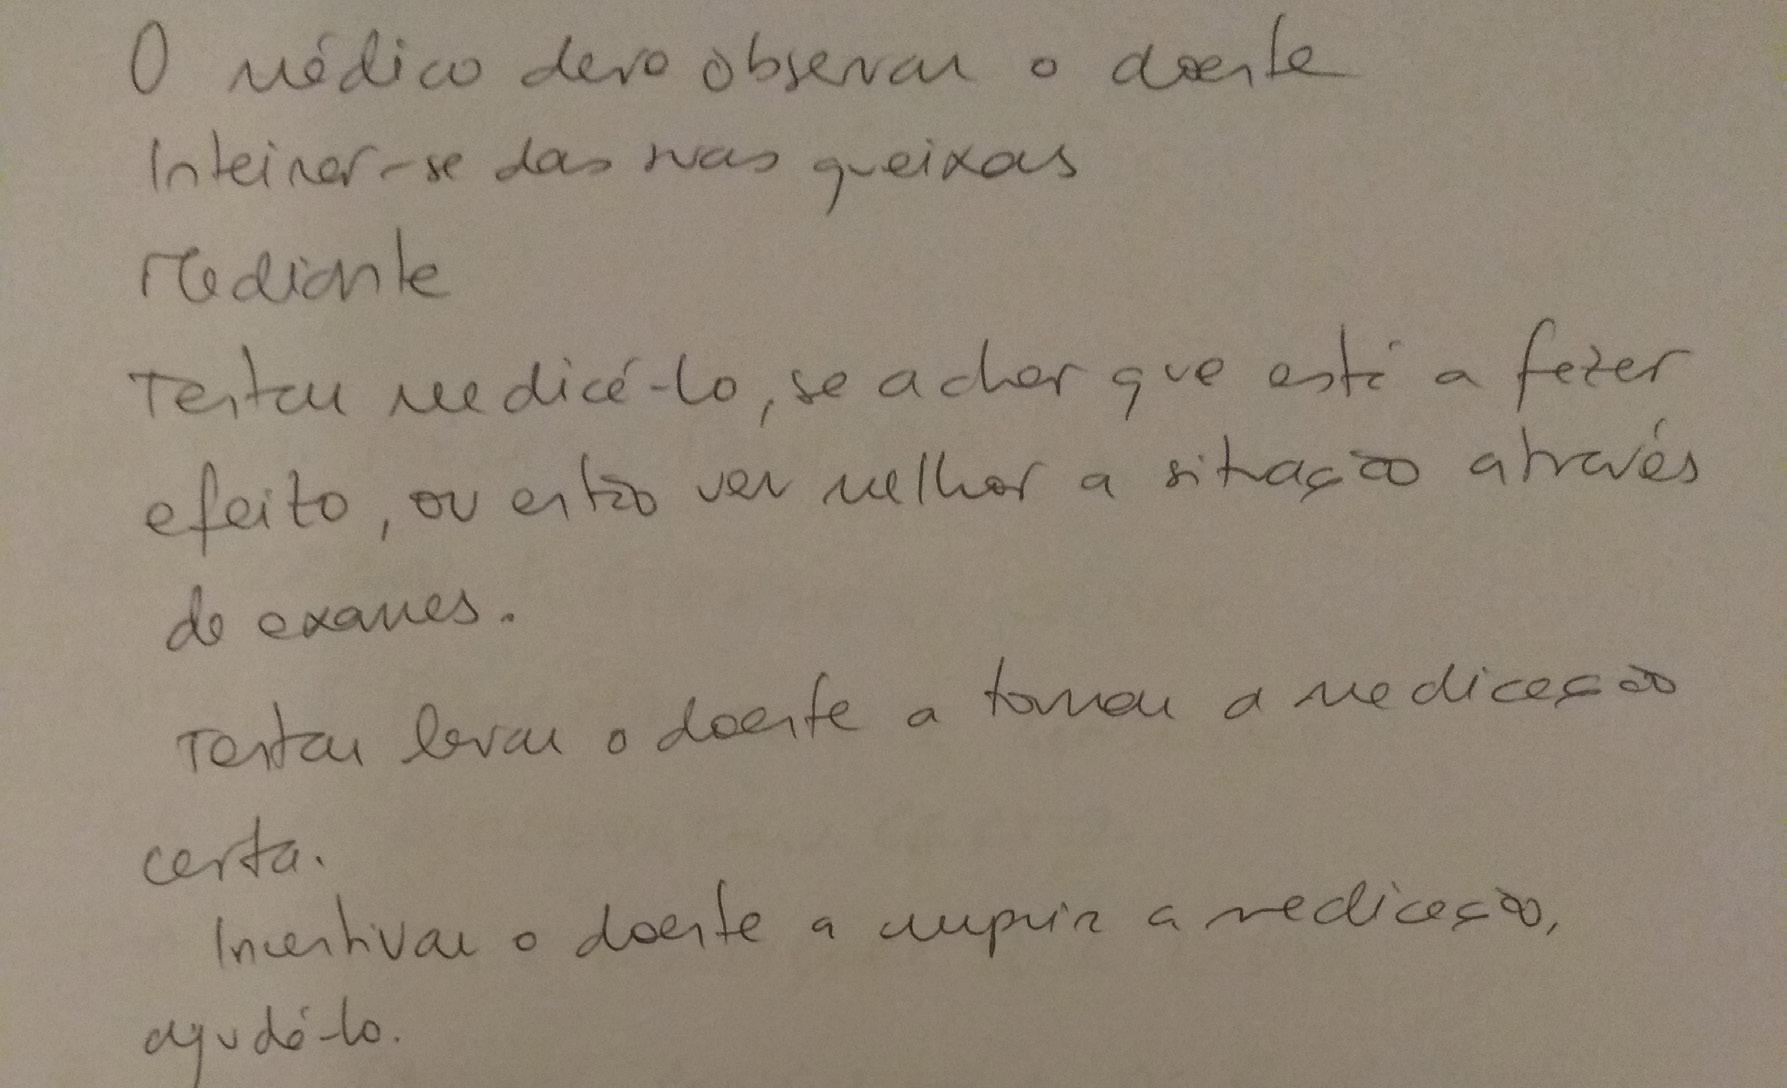 O médico deve observar o doente
Inteirar-se das suas queixas
Mediante
Tentar medicá-lo, se achar que está a fazer
efeito, ou então ver melhor a situação através
de exames.
Tentar levar o doente a tomar a medicação
certa.
Incentivar o doente a cumprir a medicação,
ajudá-lo.